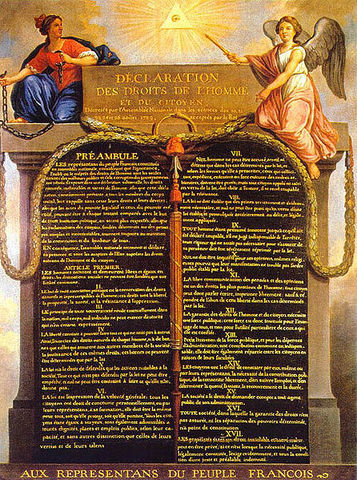 DÉCLARATION
DES DROITS DE L'HOMME
ET DU CITOYEN
Décrétés par l'Assemblée Nationale dans les séances des 20, 21
23, 24 et 26 août 1789, acceptés par le Roi
PRÉAMBULE
LES représentans du peuple François, constitués
en assemblée nationale, considérant que l'ignorance,
l'oubli ou le mépris des droits de l'homme sont les seules
causes des malheurs publics et de la corruption des gouvernemens
ont résolu d'exposer dans une déclaration solemnelle, les droits
naturels, inaliénables et sacrés de l'homme; afin que cette décla-
ration, constamment présente à tous les membres du corps
social, leur rappelle sans cesse leurs droits et leurs devoirs;
afin que les actes du pouvoir législatif et ceux du pouvoir exé-
cutif, pouvant être à chaque instant comparés avec le but
de toute institution politique, en soient plus respectés; afin que
les réclamations des citoyens, fondées désormais sur des princi-
pes simples et incontestables, tournent toujours au maintien de
la constitution et du bonheur de tous.
EN conséquence, l'assemblée nationale reconnoit et déclare,
en présence et sous les auspices de l'Etre suprême les droits
suivans de l'homme et du citoyen.
ARTICLE PREMIER.
LES hommes naissent et demeurent libres et égaux en
droits; les distinctions sociales ne peuvent être fondées que sur
l'utilité commune.
II.
LE but de toute association politique est la conservation des droits
naturels et imprescriptibles de l'homme; ces droits sont la liberté,
la propriété, la sureté, et la résistance à l'oppression.
III.
LE principe de toute souveraineté réside essentiellement dans
la nation, nul corps, nul individu ne peut exercer d'autorité
qui n'en émane expressément.
LA liberté consiste à pouvoir faire tout ce qui ne nuit pas à autrui
Ainsi, l'exercice des droits naturels de chaque homme, n'a de bor-
nes que celles qui assurent aux autres membres de la société
la jouissance de ces mêmes droits; ces bornes ne peuvent
être déterminées que par la loi.
V.
LA loi n'a le droit de défendre que les actions nuisibles à la
société. Tout ce qui n'est pas défendu par la loi ne peut être
empêché, et nul ne peut être contraint à faire ce qu'elle n'or-
donne pas.
VI.
LA loi est l'expression de la volonté générale; tous les
citoyens ont droit de concourir personnellement, ou par
leurs représentans, à sa formation; elle doit être la même
pour tous, soit qu'elle protege, soit qu'elle punisse. Tous les cito-
yens étant égaux à ses yeux, sont également admissibles à
toutes dignités, places et emplois publics, selon leur ca-
pacité, et sans autres distinction que celles de leurs
vertus et de leurs talens.
VII.
NUL homme ne peut être accusé, arrêté ni
détenu que dans les cas déterminés par la loi, et
selon les formes qu'elle a prescrites, ceux qui sollici-
tent, expédient, exécutent ou font exécuter des ordres ar-
bitraires, doivent être punis; mais tout citoyen appelé ou saisi
en vertu de la loi, doit obéir à l'instant, il se rend coupable
par la résistance.
VIII.
LA loi ne doit établir que des peines strictement et évidem-
ment nécessaires, et nul ne peut être puni qu'en vertu d'une
loi établie et promulguée antérieurement au délit, et légale-
ment appliquée.
IX.
TOUT homme étant présumé innocent jusqu'à ce qu'il ait
été déclaré coupable, s'il est jugé indispensable de l'arrêter,
toute rigueur qui ne serait pas nécessaire pour s'assurer de
sa personne doit être sévèrement réprimée par la loi.
NUL ne doit être inquiété pour ses opinions, mêmes religi-
euses pourvu que leur manifestation ne trouble pas l'ordre
public établi par la loi.
XI.
LA libre communication des pensées et des opinions
est un des droits les plus précieux de l'homme; tout citoyen
peut donc parler, écrire, imprimer librement; sauf à ré-
pondre de l'abus de cette liberté dans les cas déterminés
par la loi.
XII.
LA garantie des droits de l'homme et du citoyen nécessite
une force publique; cette force est donc instituée pour l'avan-
tage de tous, et non pour l'utilité particulière de ceux à qui
elle est confiée.
XIII.
POUR l'entretien de la force publique, et pour les dépenses
d'administration, une contribution commune est indispen-
sable; elle doit être également répartie entre les citoyens en
raison de leurs facultés.
XIV.
LES citoyens ont le droit de constater par eux même ou
par leurs représentans, la nécessité de la contribution pub-
lique, de la consentir librement, d'en suivre l'emploi, et d'en
déterminer la quotité, l'assiette, le recouvrement et la durée.
XV.
LA société a le droit de demander compte à tout agent
public de son administration.
XVI.
TOUTE société, dans laquelle la garantie des droits n'est
pas assurée, ni la séparation des pouvoirs déterminée,
n'a point de constitution.
XVII.
LES propriétés étant un droit inviolable et sacré, nul ne
peut en être privé, si ce n'est lorsque la nécessité publique,
légalement constatée, l'exige évidemment, et sous la condition
d'une juste et préalable indemnité.
AUX REPRESENTANS DU PEUPLE FRANCOIS